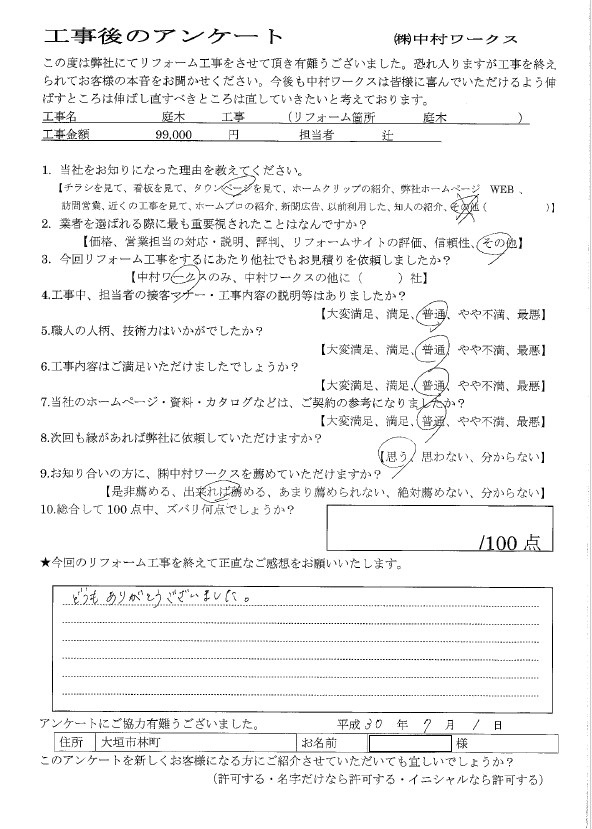 工事後のアンケート　㈱中村ワークス
この度は弊社にてリフォーム工事をさせて頂き有難うございました。恐れ入りますが工事を終え
られてお客様の本音をお聞かせください。今後も中村ワークスは皆様に喜んでいただけるよう伸
ばすところは伸ばし直すべきところは直していきたいと考えております。
工事名　庭木　工事　（リフォーム箇所　庭木　）
工事金額　99,000　円　担当者　辻
1. 当社をお知りになった理由を教えてください。
【チラシを見て、看板を見て、タウンページを見て、ホームクリップの紹介、弊社ホームページ　WEB 、
訪問営業、近くの工事を見て、ホームプロの紹介、新聞広告、以前利用した、知人の紹介、その他（　）】
2. 業者を選ばれる際に最も重要視されたことはなんですか？
【価格、営業担当の対応・説明、評判、リフォームサイトの評価、信頼性、その他】
3. 今回リフォーム工事をするにあたり他社でもお見積りを依頼しましたか？
【中村ワークスのみ、中村ワークスの他に（　）社】
4.工事中、担当者の接客マナー・工事内容の説明等はありましたか？
【大変満足、満足、普通、やや不満、最悪】
5.職人の人柄、技術力はいかがでしたか？
【大変満足、満足、普通、やや不満、最悪】
6.工事内容はご満足いただけましたでしょうか？
【大変満足、満足、普通、やや不満、最悪】
7.当社のホームページ・資料・カタログなどは、ご契約の参考になりましたか？
【大変満足、満足、普通、やや不満、最悪】
8.次回も縁があれば弊社に依頼していただけますか？
【思う、思わない、分からない】
9.お知り合いの方に、㈱中村ワークスを薦めていただけますか？
【是非薦める、出来れば薦める、あまり薦められない、絶対薦めない、分からない】
10.総合して 100 点中、ズバリ何点でしょうか？
/100 点
★今回のリフォーム工事を終えて正直なご感想をお願いいたします。
どうもありがとうございました。
アンケートにご協力有難うございました。　平成 30 年 7 月 1 日
住所　大垣市林町　お名前　様
このアンケートを新しくお客様になる方にご紹介させていただいても宜しいでしょうか？
（許可する・名字だけなら許可する・イニシャルなら許可する）